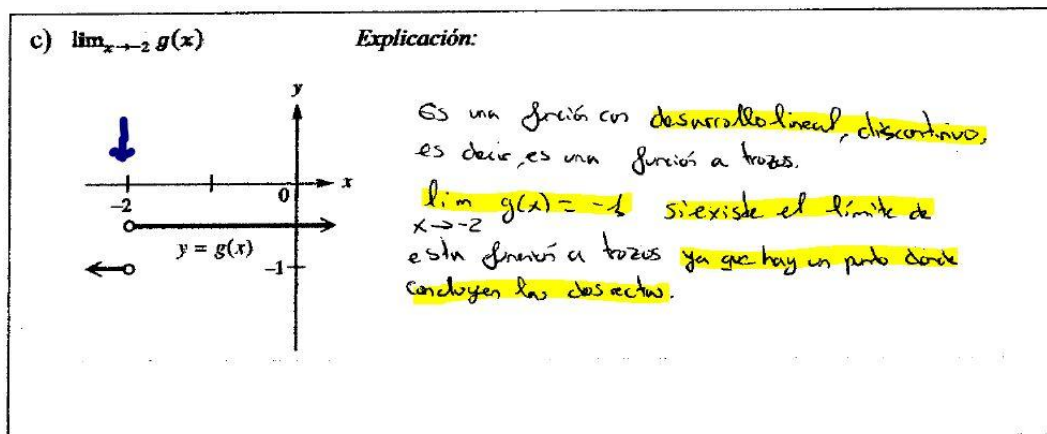 c) lim x→-2 g(x)
Explicación:
y
-2
0
x
y = g(x)
-1
Es una función con desarrollo lineal, discontinuo,
es decir, es una función a trozos.
lim g(x) = -1 si existe el límite de
x→-2
esta función a trozos ya que hay un punto donde
concluyen las dos rectas.